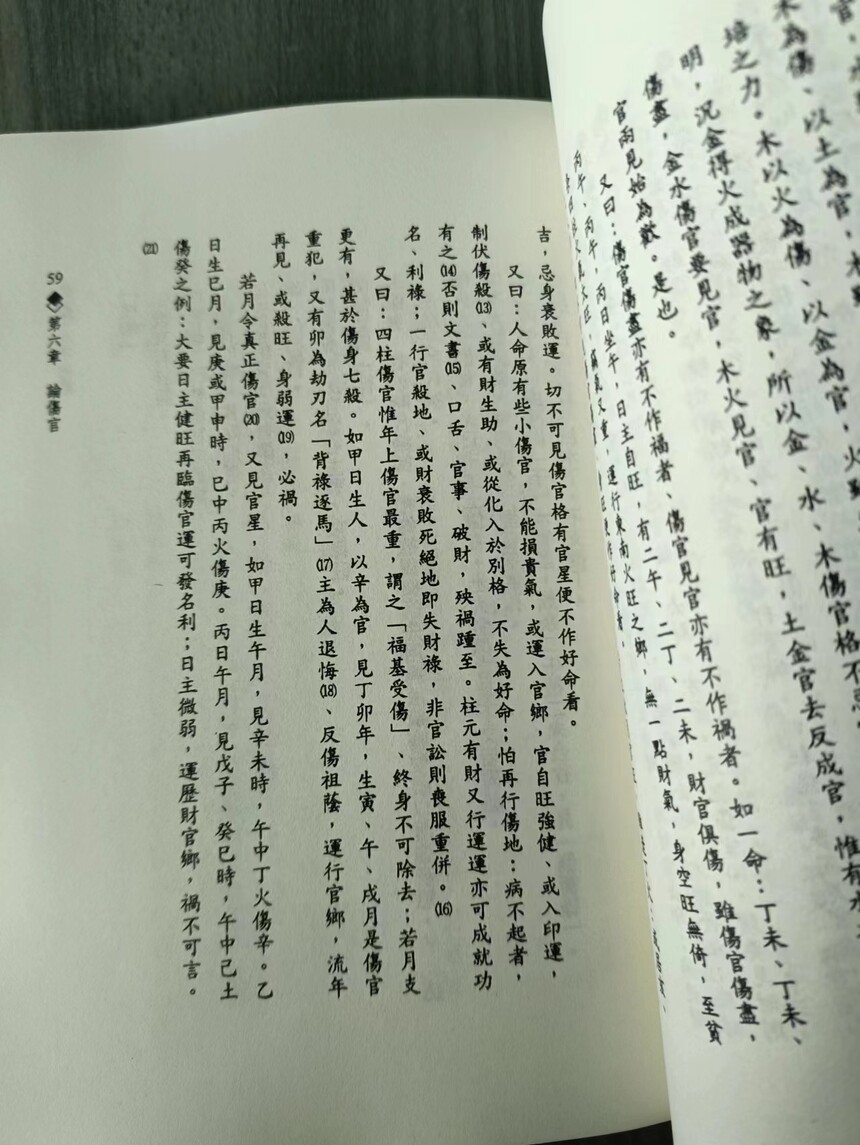 官，
木為傷、以土為官，木
培之力。木以火為傷、以金為官，火
明，沉金得火成器物之象，所以金、水、木傷官格不忌
傷盡，金水傷官要見官，木火見官、官有旺，土金官去反成官，惟有水
官兩見始為歡。是也。
又曰：傷官傷盡亦有不作福者、傷官見官亦有不作禍者。如一命：丁未、丁未、
丙午、丙午，丙日坐午，日主自旺，有二午、二丁、二未，財官俱傷，雖傷官傷盡，
又重，運行東南火旺之鄉，無一點財氣，身空旺無倚，至貧
吉，忌身衰敗運。切不可見傷官格有官星便不作好命看。
又曰：人命原有些小傷官，不能損貴氣，或運入官鄉，官自旺強健、或入印運，
制伏傷殺⒀、或有財生助、或從化入於別格，不失為好命；怕再行傷地：病不起者，
有之⒁否則文書⒂、口舌、官事、破財，殃禍踵至。柱元有財又行運運亦可成就功
名、利祿；一行官殺地、或財衰敗死絕地即失財祿，非官訟則喪服重併。⒃
又曰：四柱傷官惟年上傷官最重，謂之「福基受傷」、終身不可除去；若月支
更有，甚於傷身七殺。如甲日生人，以辛為官，見丁卯年，生寅、午、戌月是傷官
重犯，又有卯為劫刃名「背祿逐馬」⒄主為人退悔⒅、反傷祖蔭，運行官鄉，流年
再見、或殺旺、身弱運⒆，必禍。
若月令真正傷官⒇，又見官星，如甲日生午月，見辛未時，午中丁火傷辛。乙
日生巳月，見庚或甲申時，巳中丙火傷庚。丙日午月，見戊子、癸巳時，午中己土
傷癸之例：大要日主健旺再臨傷官運可發名利；日主微弱，運歷財官鄉，禍不可言。
(21)
59 第六章 論傷官